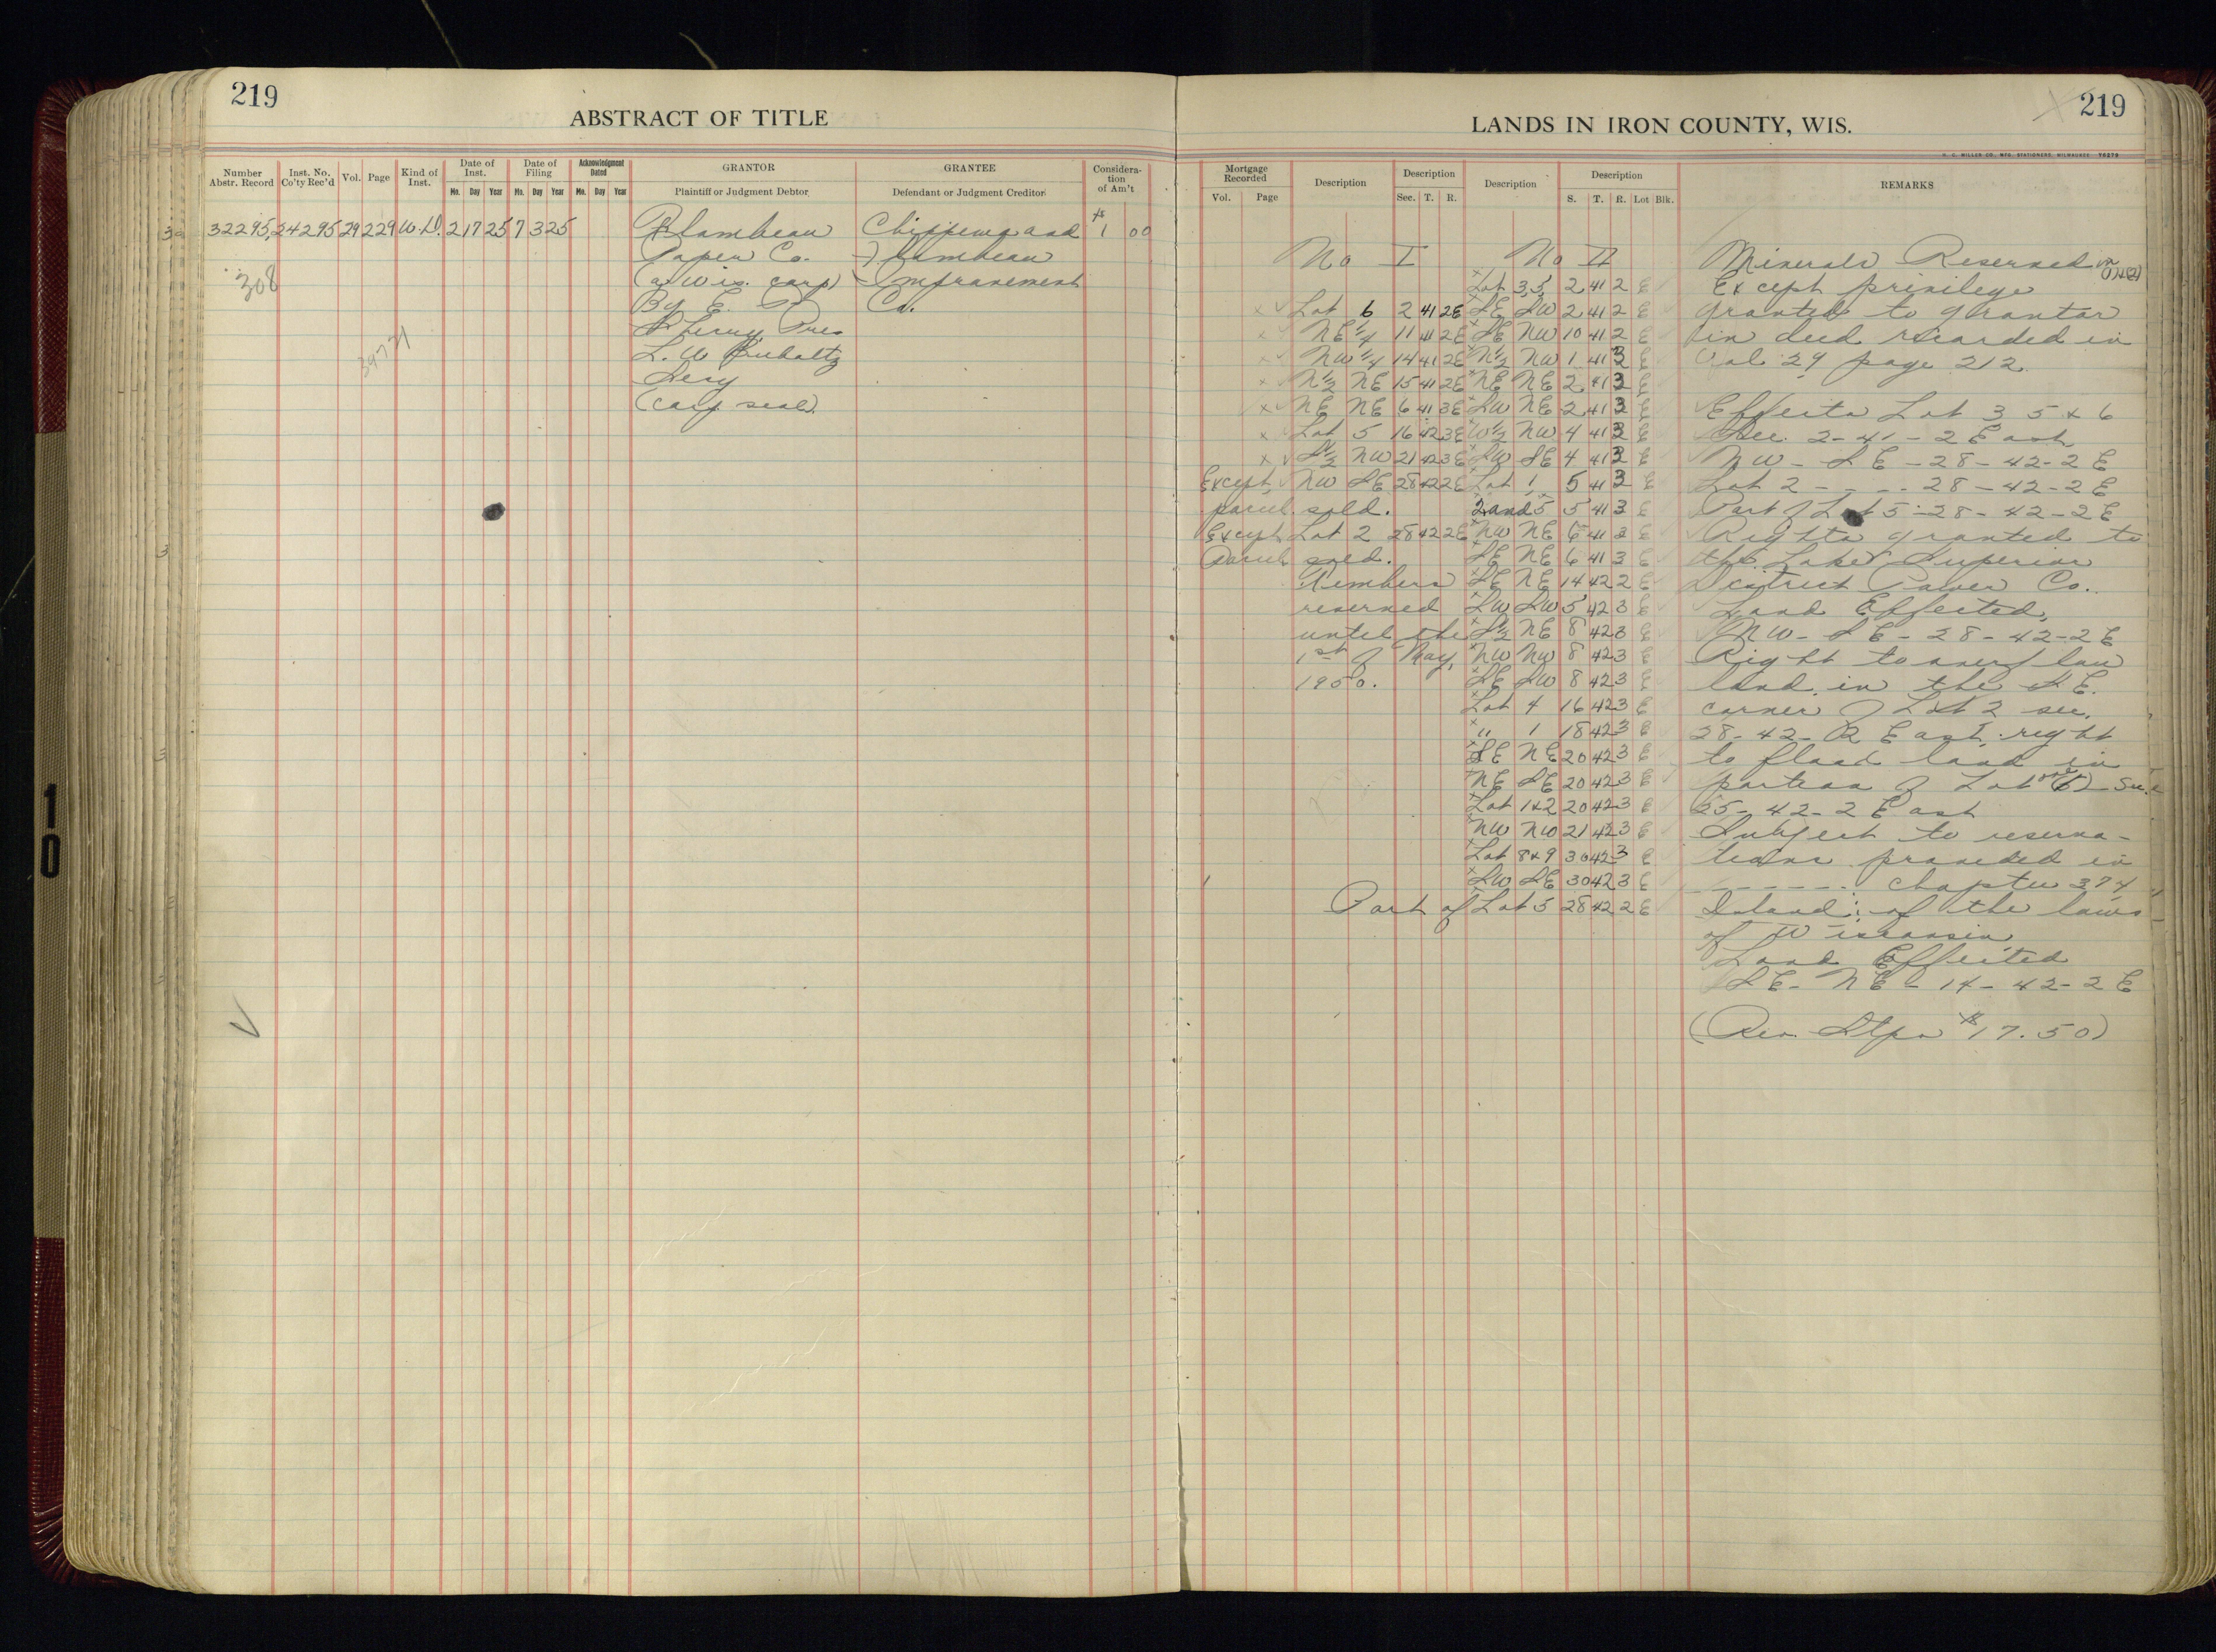 219
ABSTRACT OF TITLE
Number Abstr. Record
Inst. No. Co'ty Rec'd
Vol.
Page
Kind of Inst.
Date of Inst.
Mo. Day Year
Date of Filing
Mo. Day Year
Acknowledgment Dated
Mo. Day Year
GRANTOR
Plaintiff or Judgment Debtor
GRANTEE
Defendant or Judgment Creditor
Consideration of Am't
32295 24295 29 229 W.D. 2 17 25 7 3 25 Flambeau Chippewa and $1 00
Paper Co. Flambeau
(a Wis. corp) Improvement
By E. P. Co.
Sherry, Pres
L. W.
Secy
(corp seal)
308
219
LANDS IN IRON COUNTY, WIS.
H. C. MILLER CO., MFG. STATIONERS, MILWAUKEE
Mortgage Recorded
Vol. Page
Description
Description
Sec. T. R.
Description
Description
S. T. R. Lot Blk.
REMARKS
No I
Lot 6 2 41 2E
NE 1/4 11 41 2E
NW 1/4 14 41 2E
N 1/2 NE 15 41 2E
NE NE 6 41 3E
Lot 5 16 42 3E
S 1/2 NW 21 42 3E
Except NW SE 28 42 2E
parcel sold.
Except Lot 2 28 42 2E
Parcel sold.
Timber
reserved
until the
1st of May,
1950.
No II
Lot 3, 5, 2 41 2 E
SE SW 2 41 2 E
SE NW 10 41 2 E
N 1/2 NW 1 41 3 E
NE NE 2 41 3 E
SW NE 2 41 3 E
W 1/2 NW 4 41 3 E
SW SE 4 41 3 E
Lot 1, 5 41 3 E
2 and 5 5 41 3 E
NW NE 6 41 3 E
SE NE 6 41 3 E
SE NE 14 42 2 E
SW SW 5 42 3 E
S 1/2 NE 8 42 3 E
NW NW 8 42 3 E
SE SW 8 42 3 E
Lot 4 16 42 3 E
" 1 18 42 3 E
SE NE 20 42 3 E
NE SE 20 42 3 E
Lot 1&2 20 42 3 E
NW NW 21 42 3 E
Lot 8&9 30 42 3 E
SW SE 30 42 3 E
Part of Lot 5 28 42 2 E
Minerals Reserved
Except privilege
granted to grantor
in deed recorded in
Vol 29 page 212.
Effects Lot 3 5 & 6
Sec. 2-41-2 East
NW-SE-28-42-2E
Lot 2 - - - - 28-42-2E
Part of Lot 5-28-42-2E
Rights granted to
the Lake Superior
District Power Co.
Land Effected,
NW-SE-28-42-2E
Right to overflow
land in the SE.
corner of Lot 2 sec.
28-42-2 East; right
to flood land in
portion of Lot Sec.
25-42-2 East
Subject to reserva-
tions provided in
- - - - - - chapter 374
Island: of the laws
of Wisconsin,
Land Effected
SE-NE-14-42-2E
(Rev. Stps $17.50)